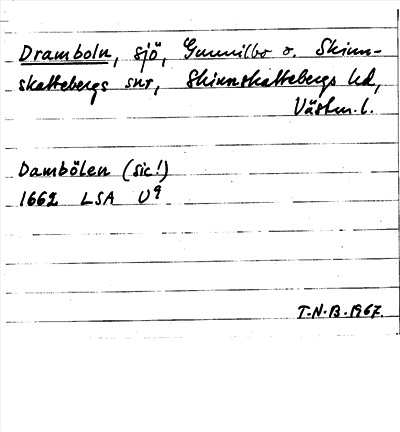 Dramboln, sjö, Gunnilbo o. Skinn-
skattebergs snr, Skinnskattebergs hd,
Västm. l.
Dambölen (sic!)
1662 LSA U9
T.N.B. 1967.